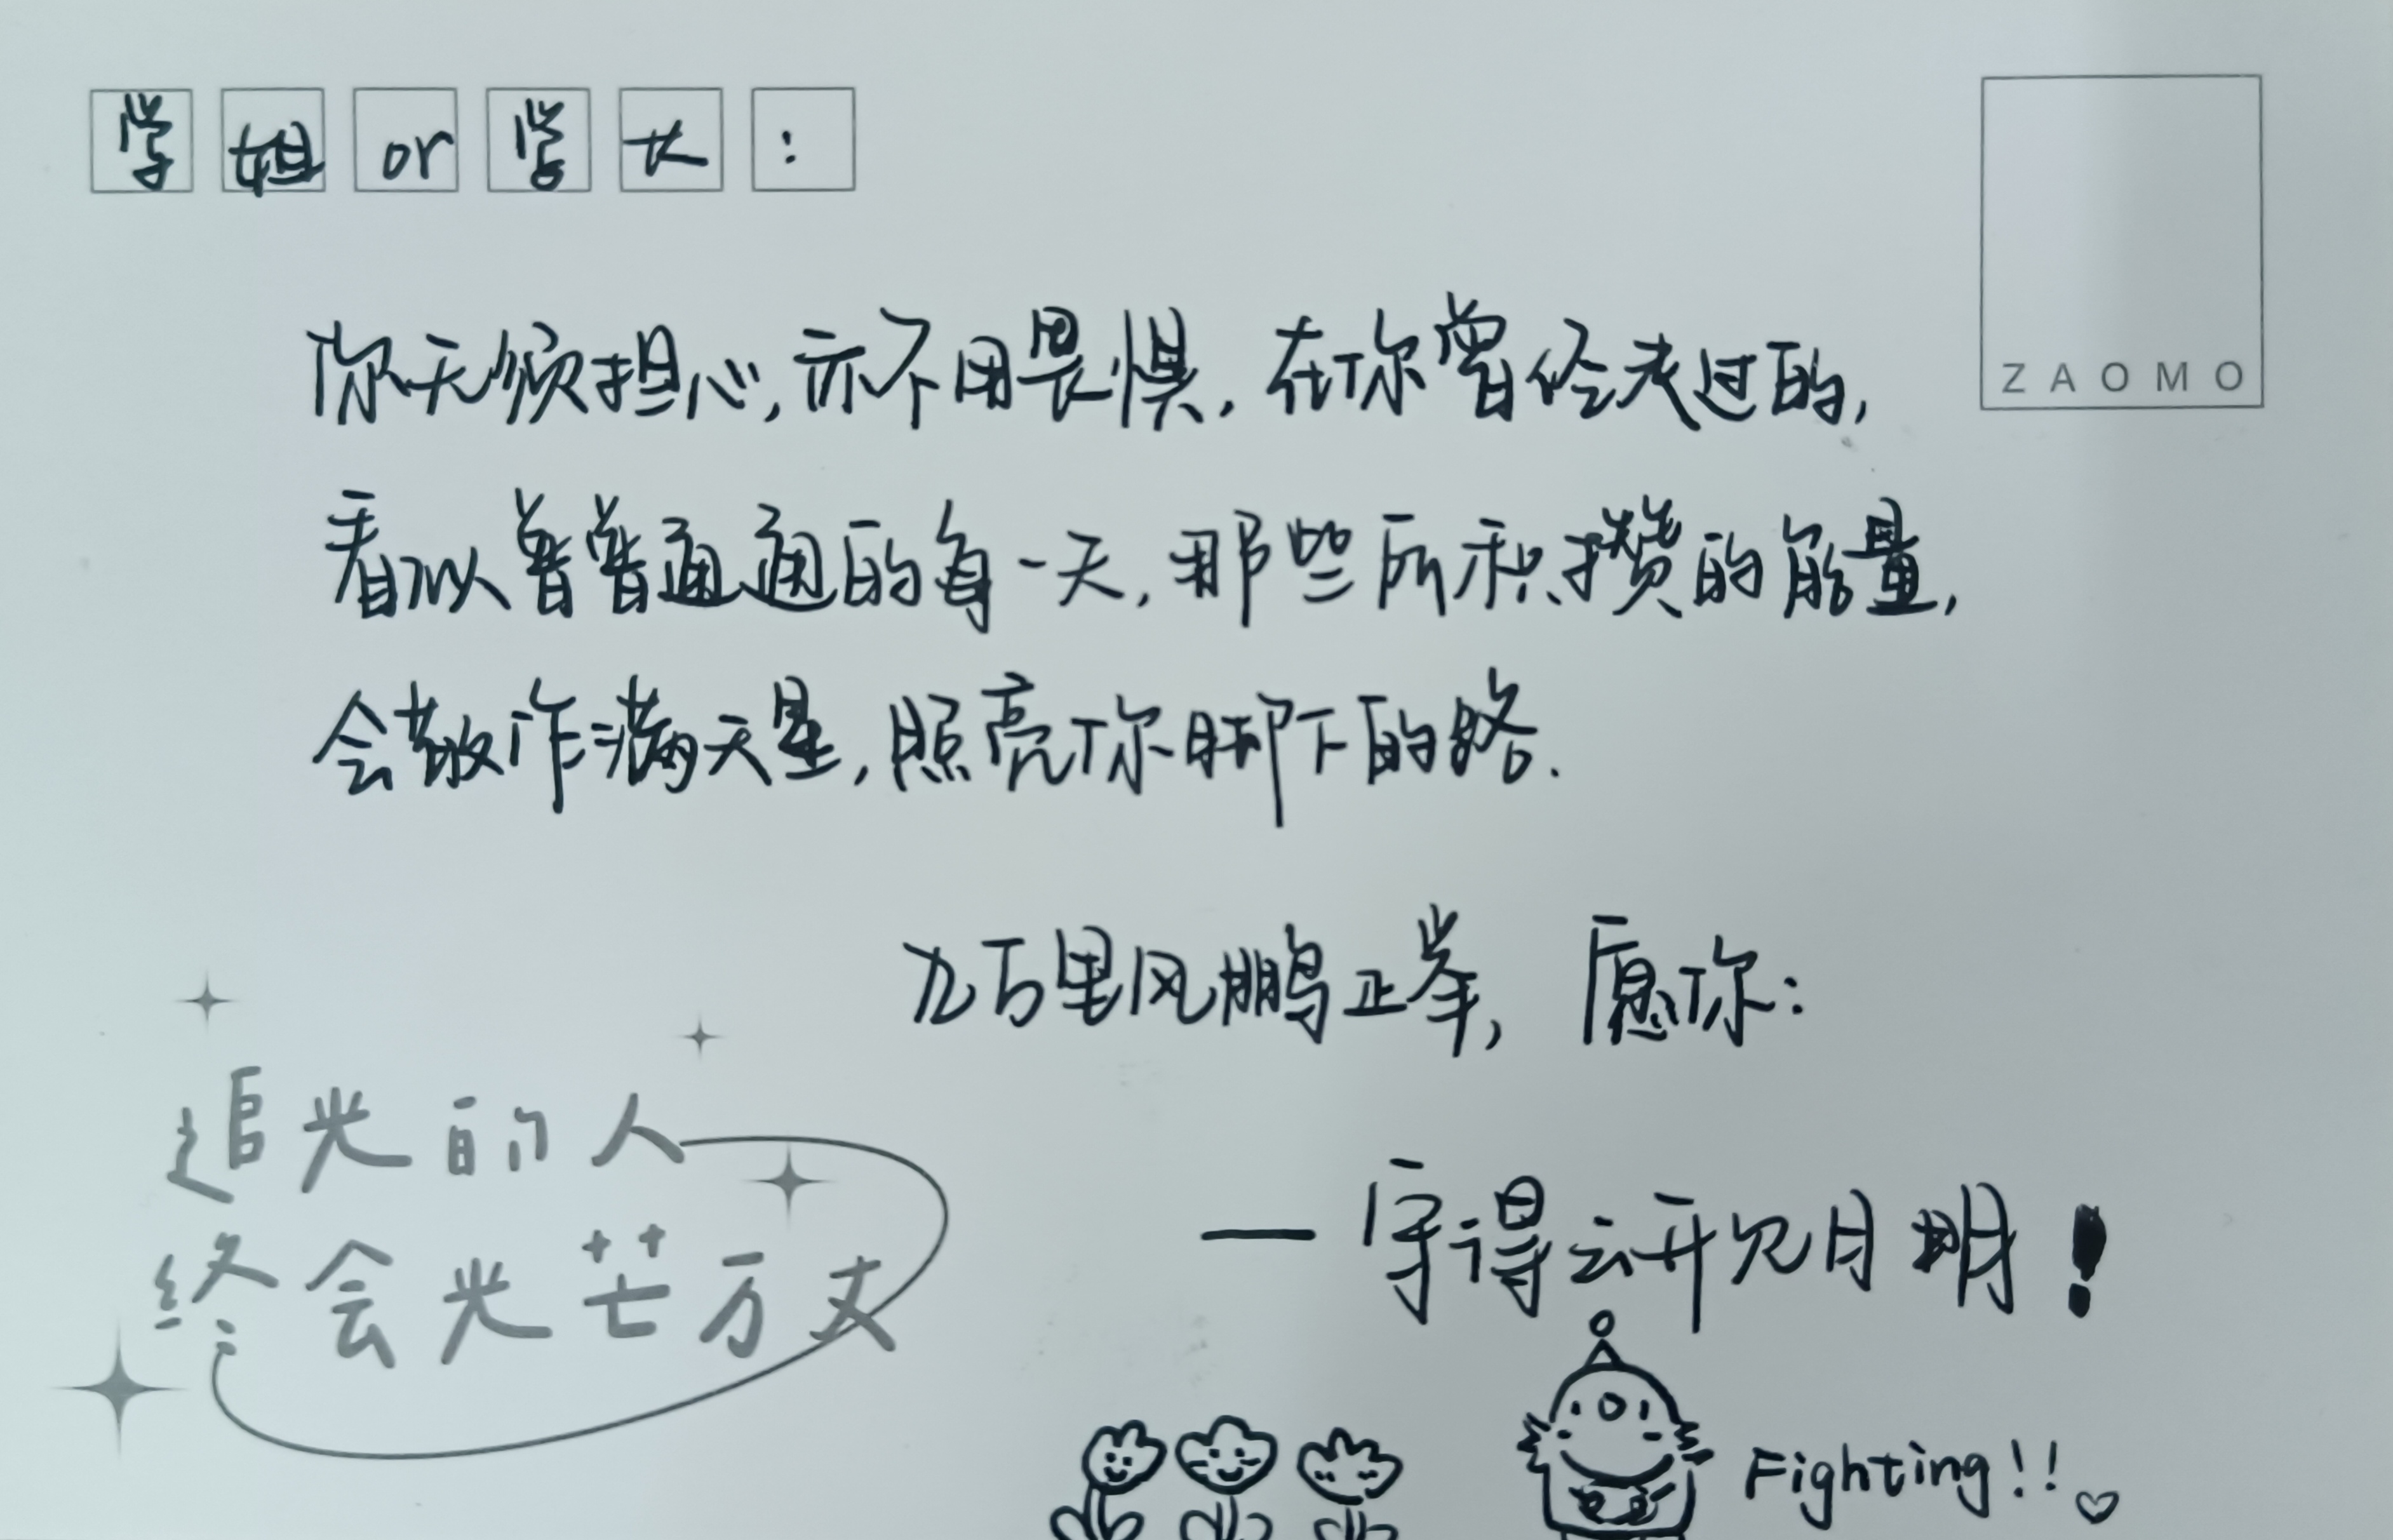 学姐or学长：
ZAOMO
你无须担心,亦不用畏惧,在你曾经走过的,
看似普普通通的每一天,那些所积攒的能量,
会散作满天星,照亮你脚下的路.
九万里风鹏正举,愿你:
—守得云开见月明!
追光的人
终会光芒万丈
Fighting!!